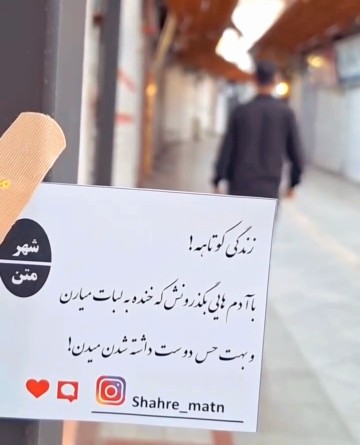 شهر
متن
زندگی کوتاهه!
با آدم هایی بگذرونش که خنده به لبات میارن
و بهت حس دوست داشته شدن میدن!
Shahre_matn